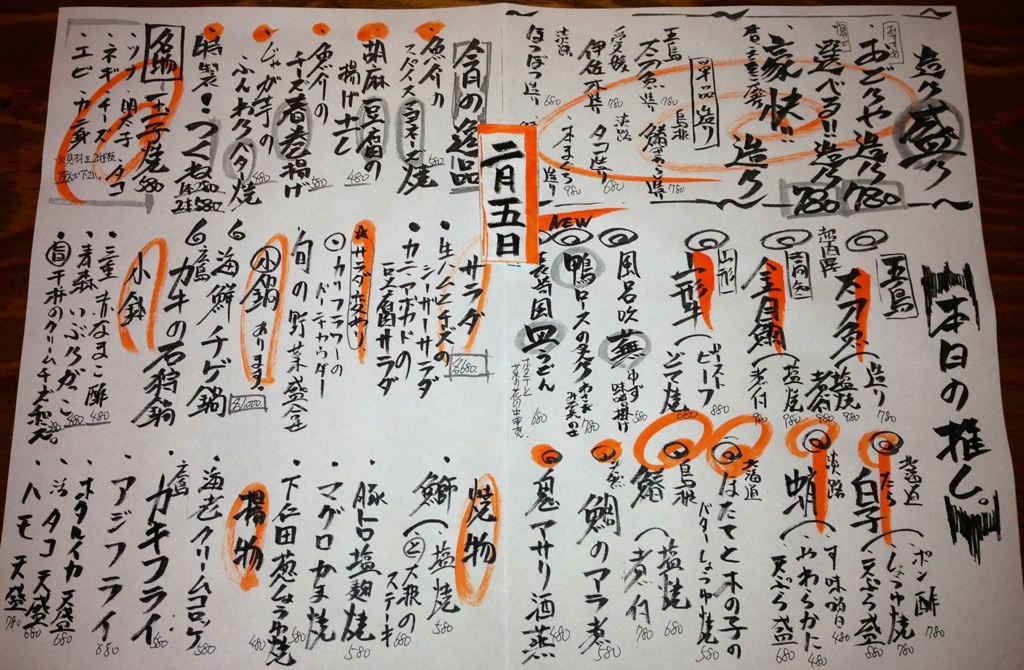 造り盛り
おすすめ
おどりや造り 780
選べる!!造り 780
豪快造り
単品造り
五島
太刀魚造り 780
島根
愛媛
伊佐木造り 780
淡路
タコ造り 680
本まぐろ造り 980
淡路
ほうぼう造り 680
二月五日
今日の逸品
魚介のスパイスマヨネーズ焼 580
胡麻豆腐の揚げ出し 480
魚介のチーズ春巻揚げ
じゃが芋のふんわりバター焼 480
特製!つくね
1本 280
2本 580
名物 玉子焼 580
・ツブ ・明太子 ・タコ
・ネギ ・チーズ
・エビ ・カニ身
本日の推し。
五島
太刀魚(造り 780
塩焼
煮付
高知
金目鯛(塩焼 980
煮付 980
山形
山形牛(ローストビーフ 880
どて焼 680
風呂吹蕪 ゆず味噌掛け 580
NEW
鴨ロースの炙り わさび
皿うどん 680
北海道
たら白子(ポン酢 780
しょうゆ焼 780
天ぷら 880
淡路
蛸(やわらかに 480
天ぷら 680
北海道
ほたてと木の子のバターしょうゆ焼 580
島根
(塩焼 680
煮付 780
鯛のアラ煮
鬼アサリ酒蒸 480
サラダ 各680
・生ハムとチーズのシーザーサラダ
・カニとアボカドの豆腐サラダ
☆サラダ变
・カリフラワーのバーニャカウダー
旬の野菜盛合
小鍋あります。 各1000
・海鮮チゲ鍋
広島
・カキの石狩鍋
小鉢
・三重 赤なまこ酢 480
・青森 いぶりがっこ 480
・自 干柿のクリームチーズ和え
焼物
・鰤(塩焼 680
と大根のステーキ 680
・豚トロ塩麹焼 580
・マグロかま焼
・下仁田葱しょうゆ焼 580
揚物 480
・海老クリームコロッケ 580
広島
・カキフライ 580
・アジフライ 680
・ホタルイカ天盛 680
・活タコ天盛 680
・ハモ天盛 780